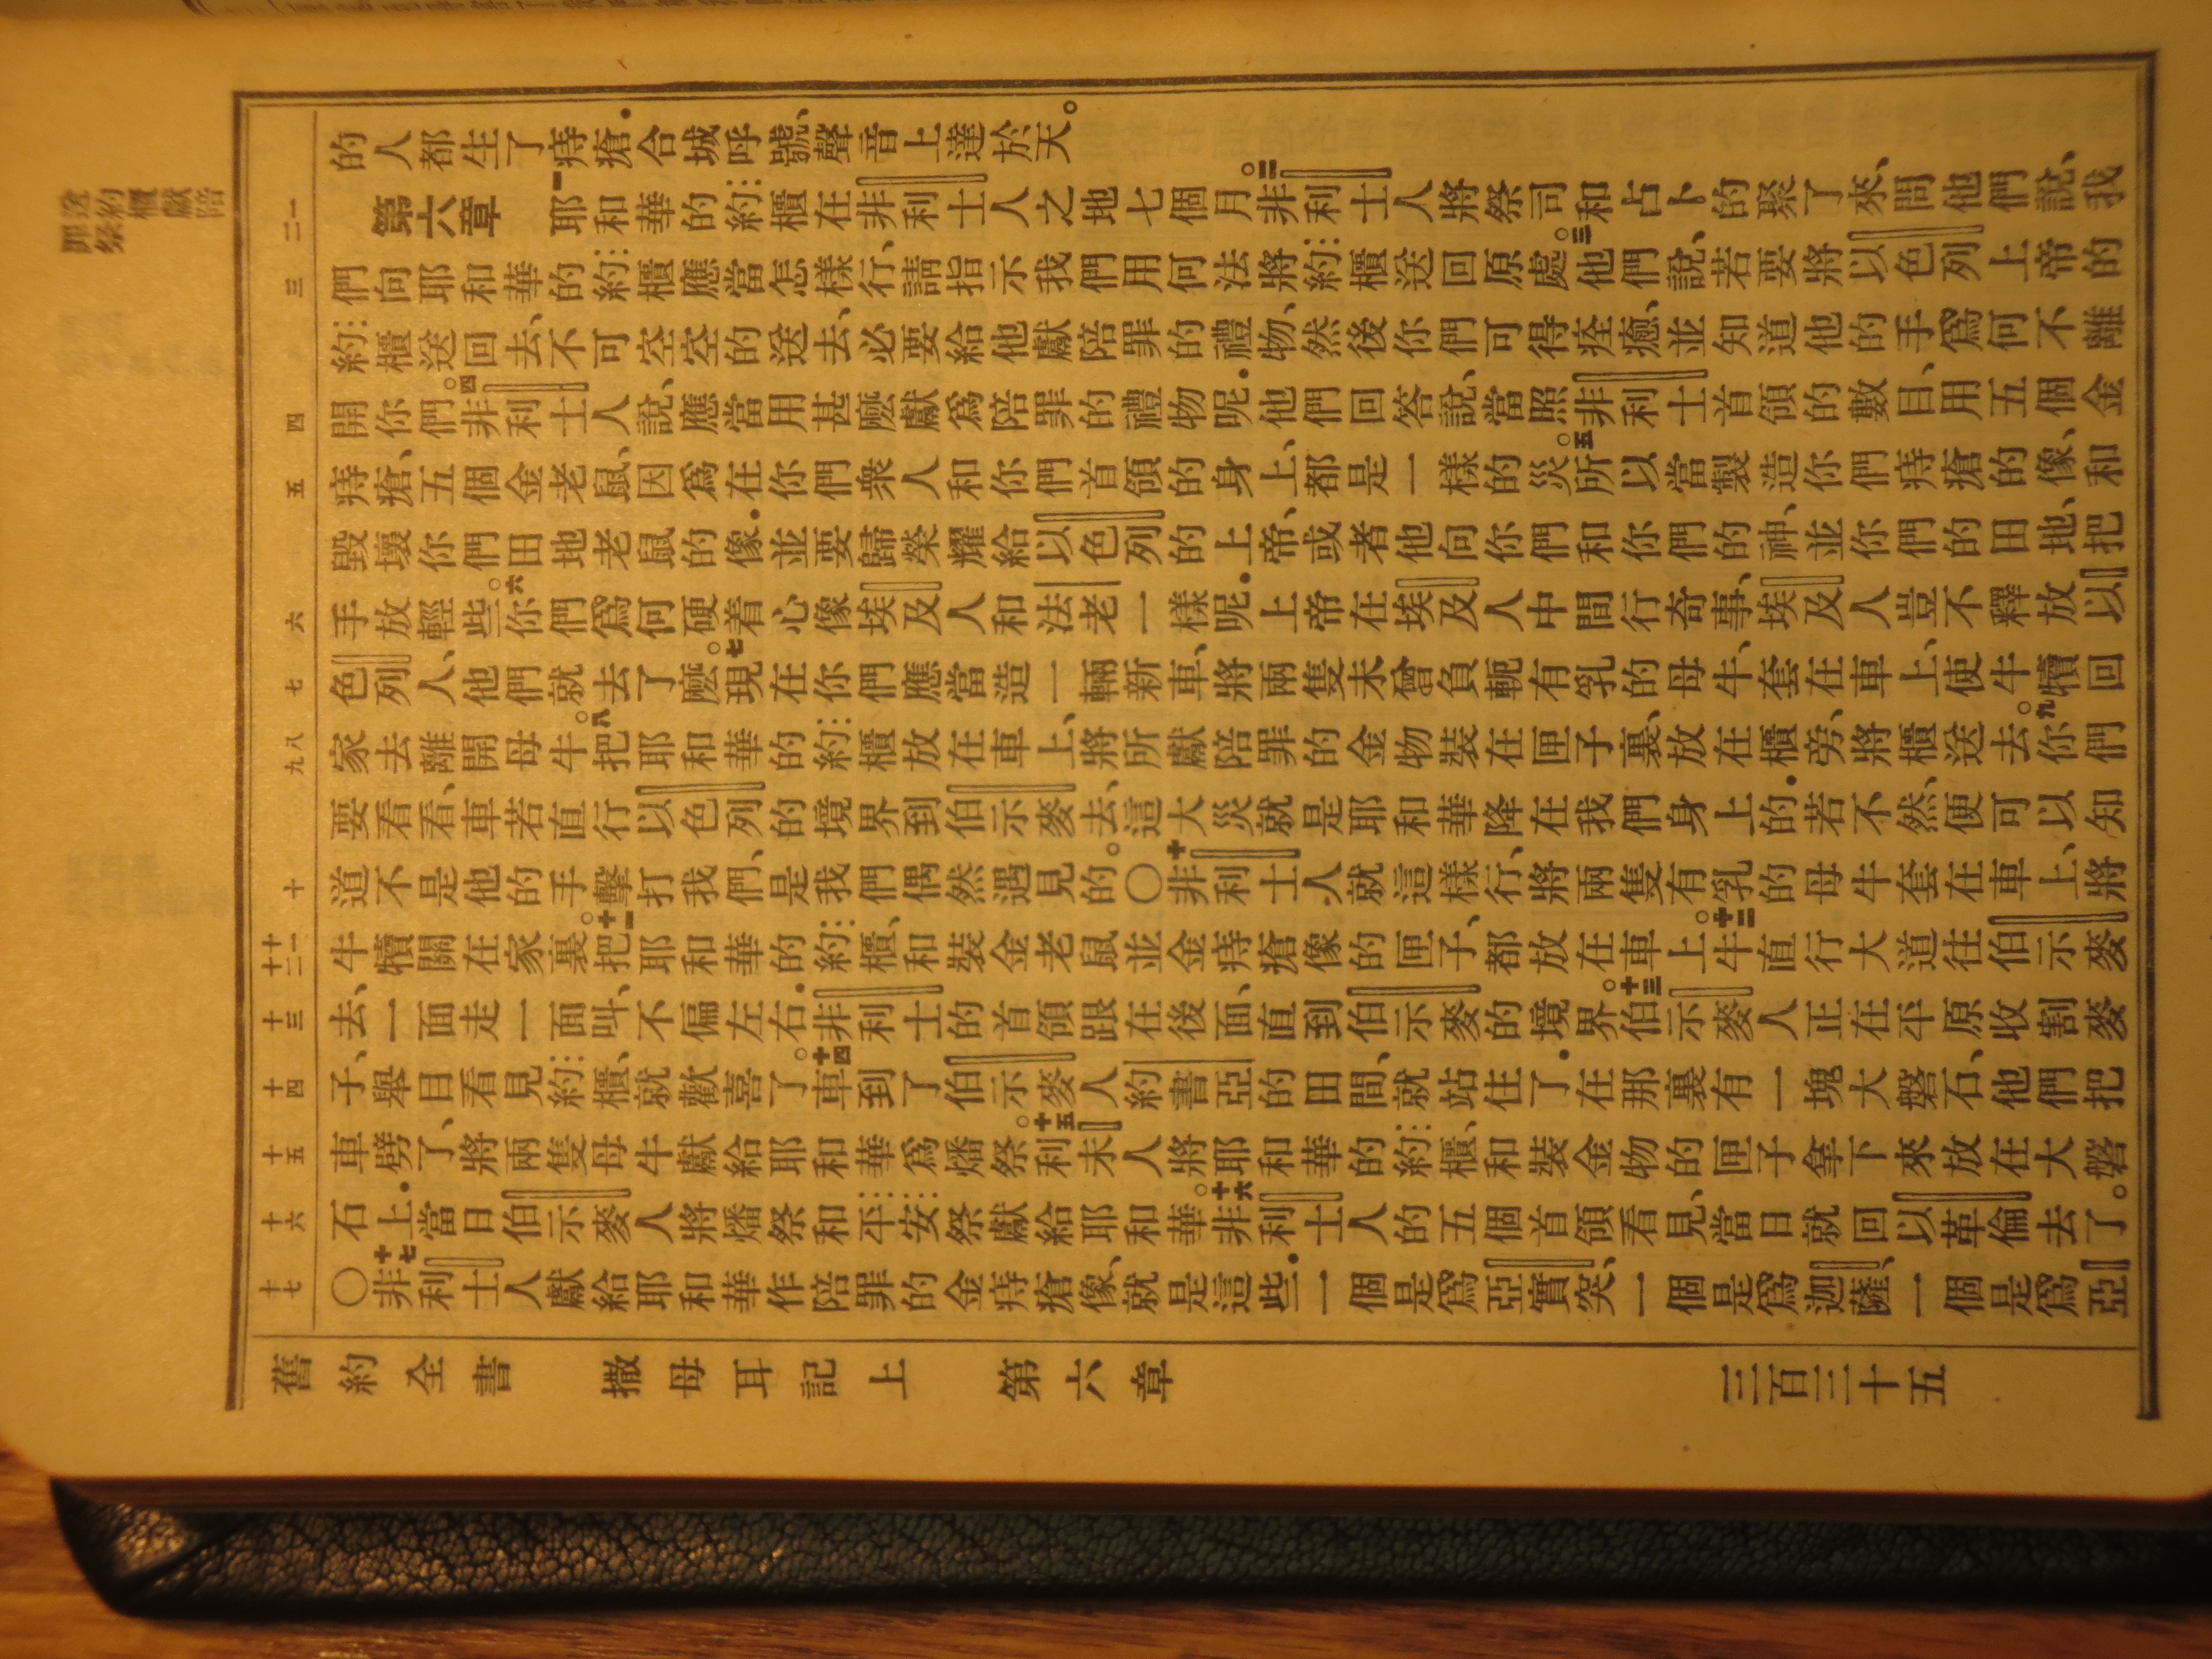 的人都生了痔瘡．合城呼號、聲音上達於天。
第六章 一耶和華的約櫃在非利士人之地七個月。二非利士人將祭司和占卜的聚了來、問他們說、我
們向耶和華的約櫃應當怎樣行、請指示我們用何法將約櫃送回原處。三他們說、若要將以色列上帝的
約櫃送回去、不可空空的送去、必要給他獻陪罪的禮物、然後你們可得痊癒、並知道他的手爲何不離
開你們。四非利士人說、應當用甚麽獻爲陪罪的禮物呢．他們回答說、當照非利士首領的數目、用五個金
痔瘡、五個金老鼠、因爲在你們衆人和你們首領的身上、都是一樣的災。五所以當製造你們痔瘡的像、和
毀壞你們田地老鼠的像．並要歸榮耀給以色列的上帝、或者他向你們和你們的神、並你們的田地、把
手放輕些。六你們爲何硬着心像埃及人和法老一樣呢．上帝在埃及人中間行奇事、埃及人豈不釋放以
色列人、他們就去了麽。七現在你們應當造一輛新車、將兩隻未曾負軛有乳的母牛、套在車上、使牛犢回
家去離開母牛。八把耶和華的約櫃放在車上、將所獻陪罪的金物裝在匣子裏、放在櫃旁、將櫃送去。九你們
要看看、車若直行以色列的境界到伯示麥去、這大災就是耶和華降在我們身上的．若不然、便可以知
道不是他的手擊打我們、是我們偶然遇見的。〇十非利士人就這樣行、將兩隻有乳的母牛套在車上、將
牛犢關在家裏。十一把耶和華的約櫃、和裝金老鼠並金痔瘡像的匣子、都放在車上。十二牛直行大道往伯示麥
去、一面走一面叫、不偏左右．非利士的首領跟在後面、直到伯示麥的境界。十三伯示麥人正在平原收割麥
子、舉目看見約櫃、就歡喜了。十四車到了伯示麥人約書亞的田間、就站住了．在那裏有一塊大磐石、他們把
車劈了、將兩隻母牛獻給耶和華爲燔祭。十五利未人將耶和華的約櫃、和裝金物的匣子拿下來放在大磐
石上．當日伯示麥人將燔祭和平安祭獻給耶和華。十六非利士人的五個首領看見、當日就回以革倫去了。
〇十七非利士人獻給耶和華作陪罪的金痔瘡像、就是這些．一個是爲亞實突、一個是爲迦薩、一個是爲亞
舊約全書 撒母耳記上 第六章 三百三十五
一
二
三
四
五
六
七
八
九
十
十一
十二
十三
十四
十五
十六
十七
送約櫃獻陪
罪祭